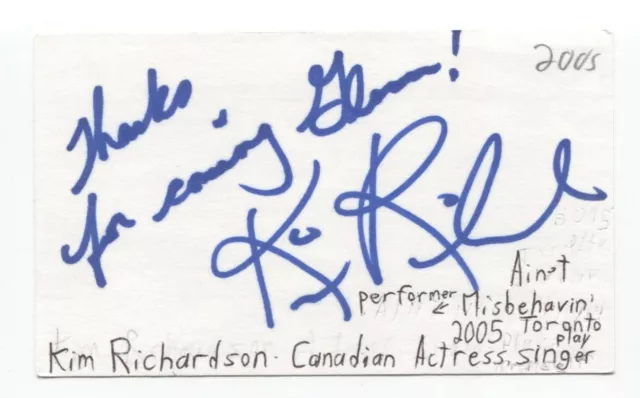 2005
Thanks
for coming Glenn!
Kim Rich
Ain't
performer Misbehavin'
2005 Toronto
play
Kim Richardson. Canadian Actress, singer